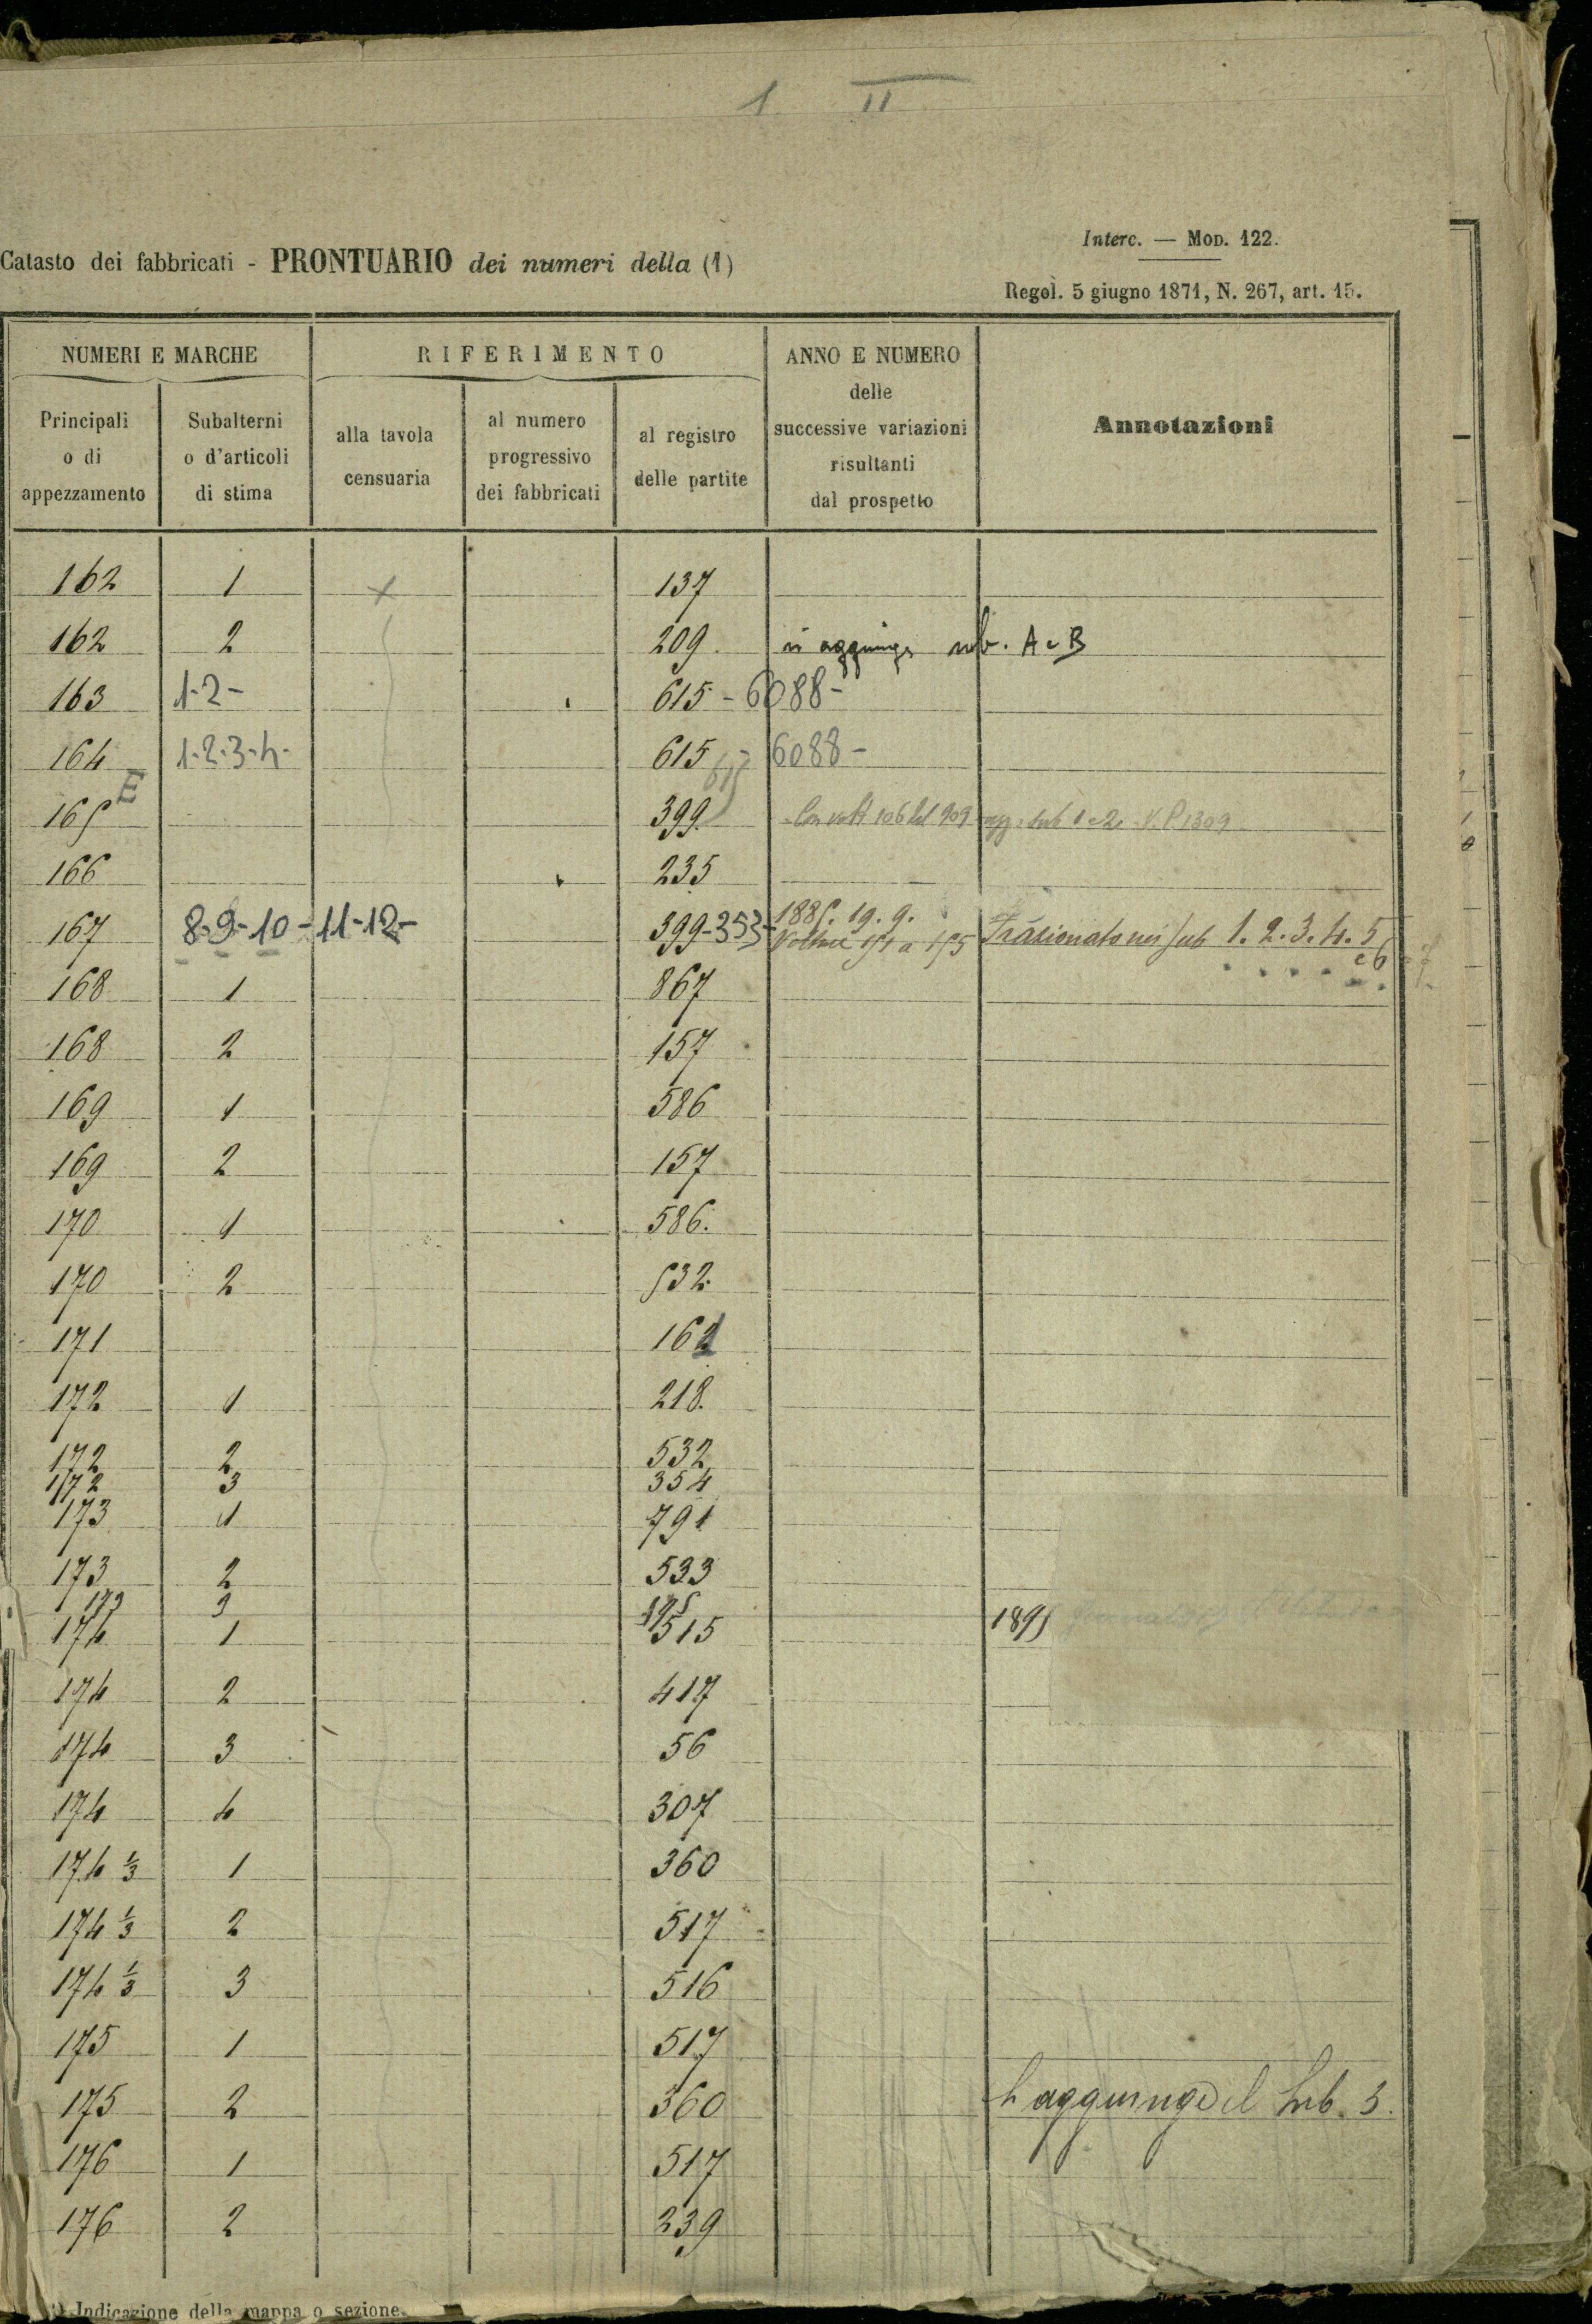 1 II
Interc. — Mod. 122.
Catasto dei fabbricati - PRONTUARIO dei numeri della (1)
Regol. 5 giugno 1871, N. 267, art. 15.
NUMERI E MARCHE
RIFERIMENTO
ANNO E NUMERO
delle
successive variazioni
risultanti
dal prospetto
Annotazioni
Principali
o di
appezzamento
Subalterni
o d'articoli
di stima
alla tavola
censuaria
al numero
progressivo
dei fabbricati
al registro
delle partite
162 1 137
162 2 209. si aggiunge sub. A e B
163 1-2- 615-6088-
164 1-2-3-4- 615 6088-
E
615
165 399. 106 del 909 agg. sub 1 e 2 V. P 1309
166 235
167 8-9-10-11-12- 399-353- 1885. 19. 9. Frazionato nei sub 1. 2. 3. 4. 5
Volture 151 a 155 e 6 e 7
168 1 867
168 2 157
169 1 586
169 2 157
170 1 586.
170 2 532.
171 162
172 1 218.
172 2 532
172 3 354
173 1 791
173 2 533
173 3
174 1 515 1895
174 2 417
174 3 56
174 4 307
174 1/3 1 360
174 1/3 2 517
174 1/3 3 516
175 1 517
175 2 360 S'aggiunge il sub. 3.
176 1 517
176 2 239
Indicazione della mappa o sezione.